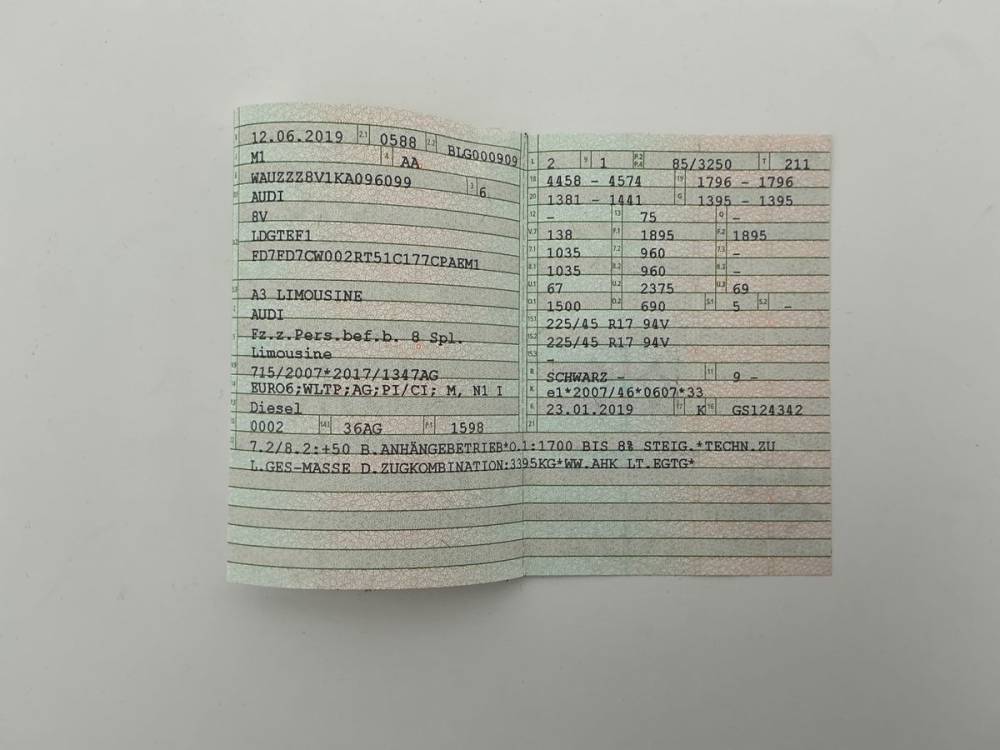 12.06.2019 2.1 0588 2.2 BLG000909
M1 4 AA
WAUZZZ8V1KA096099 3 6
AUDI
8V
LDGTEF1
FD7FD7CW002RT51C177CPAEM1
A3 LIMOUSINE
AUDI
Fz.z.Pers.bef.b. 8 Spl.
Limousine
715/2007*2017/1347AG
EURO6;WLTP;AG;PI/CI; M, N1 I
Diesel
0002 14.1 36AG P.1 1598
2 9 1 P.2 P.4 85/3250 T 211
18 4458 - 4574 19 1796 - 1796
20 1381 - 1441 G 1395 - 1395
12 - 13 75 Q -
V.7 138 F.1 1895 F.2 1895
7.1 1035 7.2 960 7.3 -
8.1 1035 8.2 960 8.3 -
U.1 67 U.2 2375 U.3 69
O.1 1500 O.2 690 S.1 5 S.2 -
15.1 225/45 R17 94V
15.2 225/45 R17 94V
15.3 -
R SCHWARZ - 11 9 -
K e1*2007/46*0607*33
6 23.01.2019 17 K 16 GS124342
21
7.2/8.2:+50 B.ANHÄNGEBETRIEB*O.1:1700 BIS 8% STEIG.*TECHN.ZU
L.GES-MASSE D.ZUGKOMBINATION:3395KG*WW.AHK LT.EGTG*